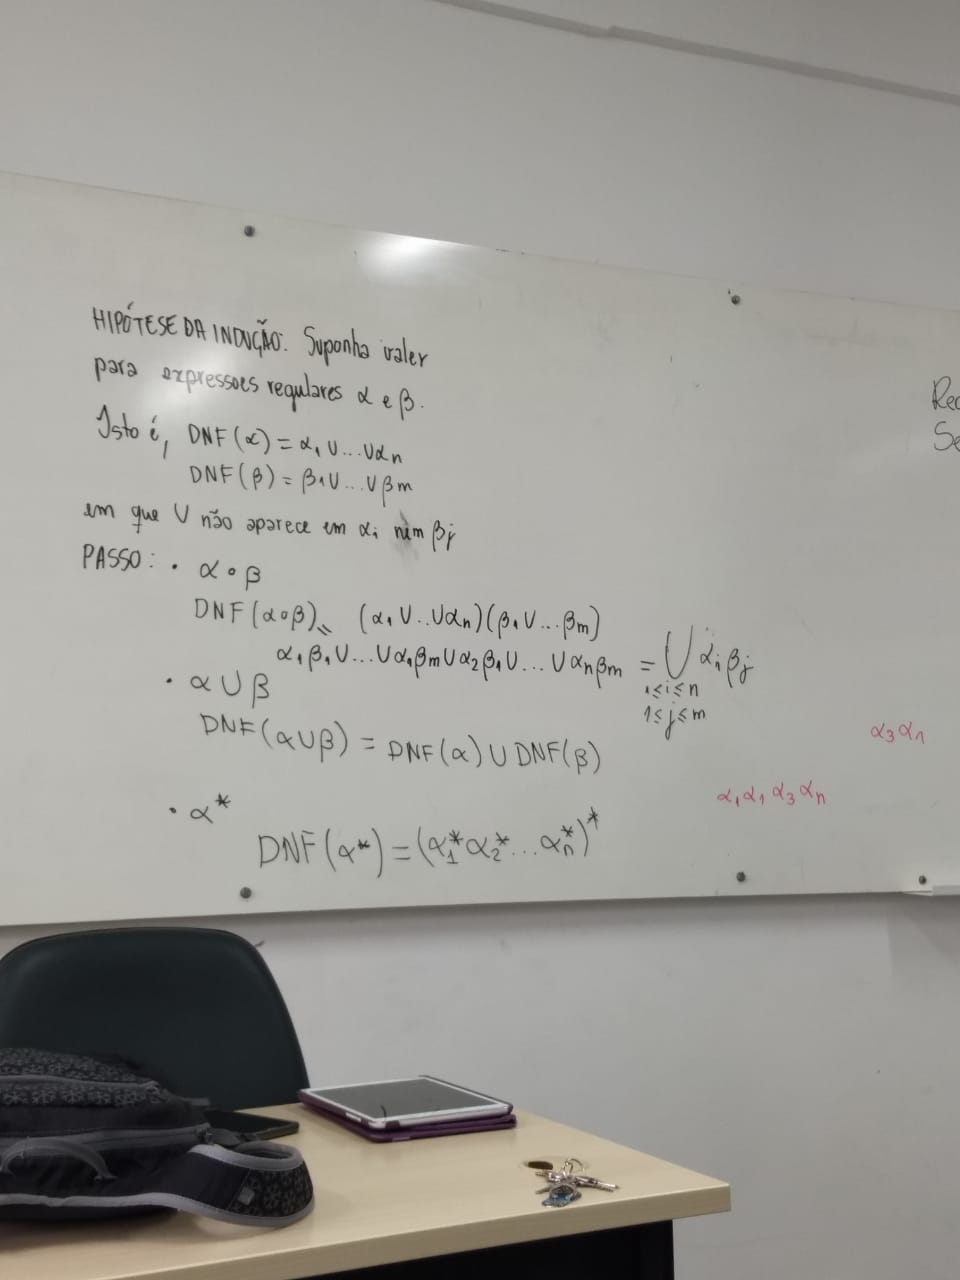 HIPÓTESE DA INDUÇÃO. Suponha valer
para expressoes regulares α e β.
Isto é, DNF(α) = α₁ ∪ ... ∪ αn
DNF(β) = β₁ ∪ ... ∪ βm
em que ∪ não aparece em αi nem βj
PASSO: • α∘β
DNF(α∘β) = (α₁ ∪ .. ∪ αn)(β₁ ∪ ... βm)
α₁β₁ ∪ ... ∪ α₁βm ∪ α₂β₁ ∪ ... ∪ αnβm = ⋃ αiβj
1≤i≤n
1≤j≤m
• α ∪ β
DNF(α∪β) = DNF(α) ∪ DNF(β)
• α*
DNF(α*) = (α₁* α₂* ... αn*)*
α₃α₁
α₁α₁α₃αn
Rec
Se